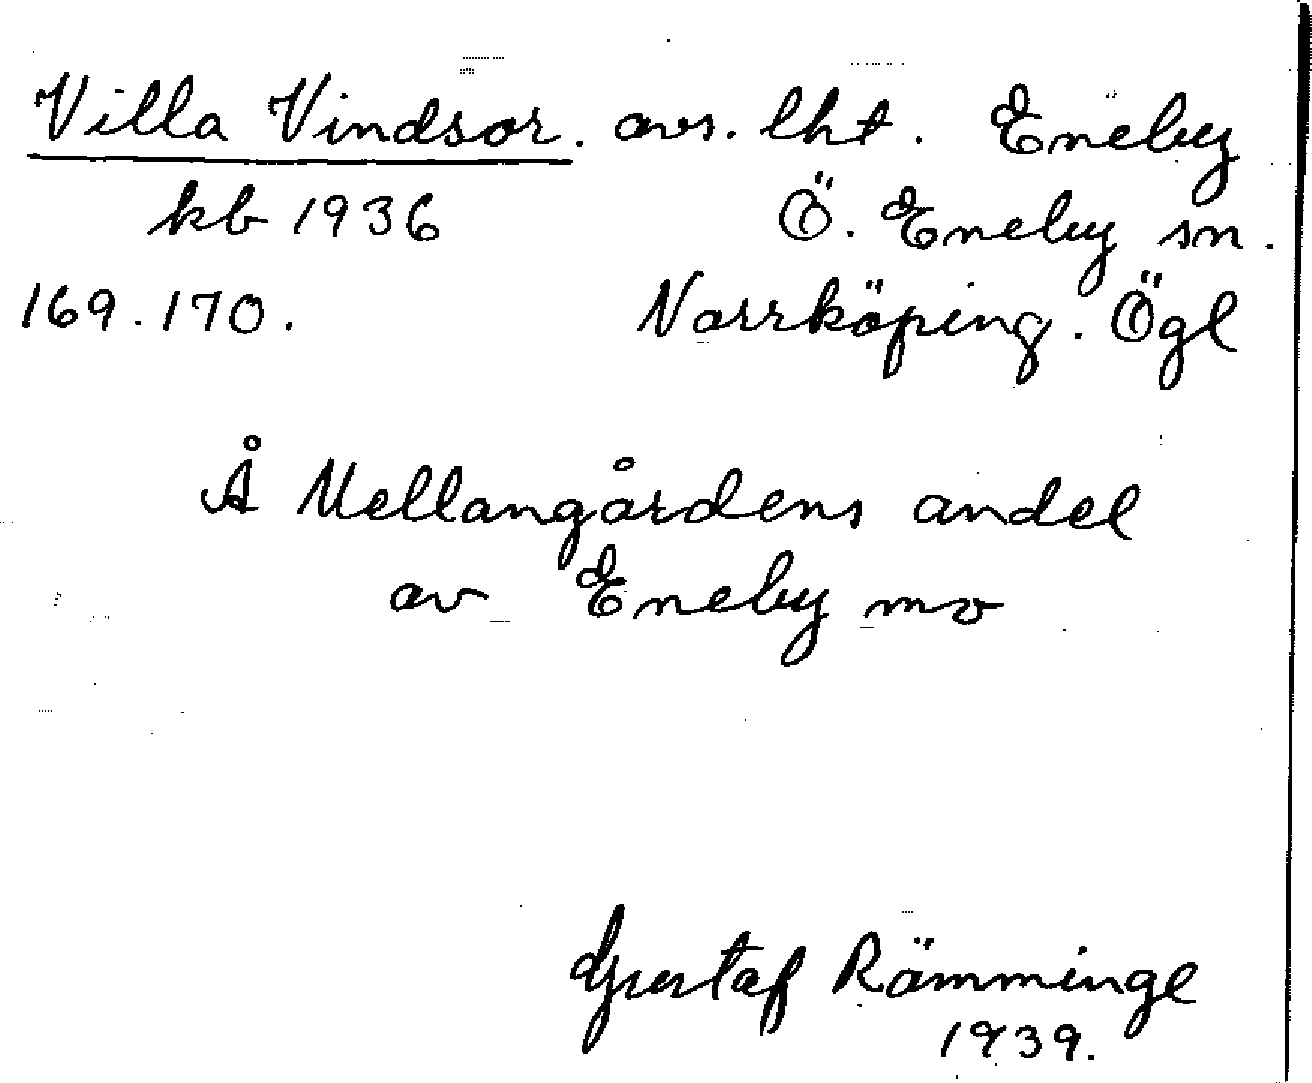 Villa Vindsor. avs. lht. Eneby
kb 1936 Ö. Eneby sn.
169. 170. Norrköping. Ögl
Å Mellangårdens andel
av Eneby mo
Gustaf Rämminge
1939.